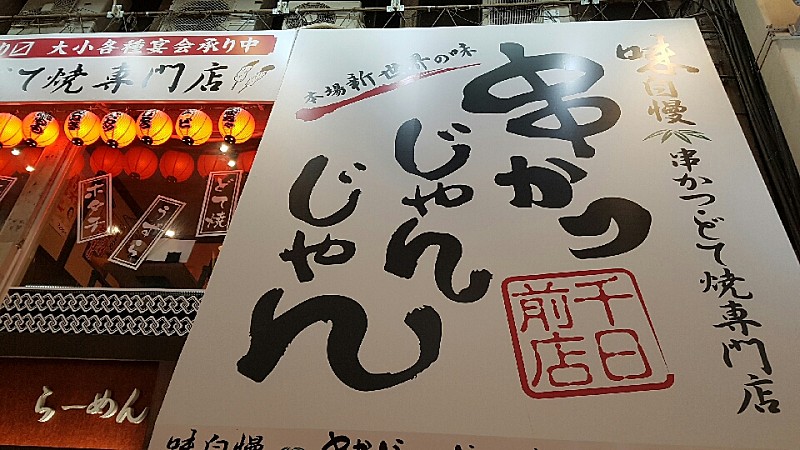 大小各種宴会承り中
どて焼専門店
ホタテ
うずら
どて焼
らーめん
味自慢
串かつ・どて焼専門店
本場新世界の味
串かつ
じゃんじゃん
千日前店
味自慢